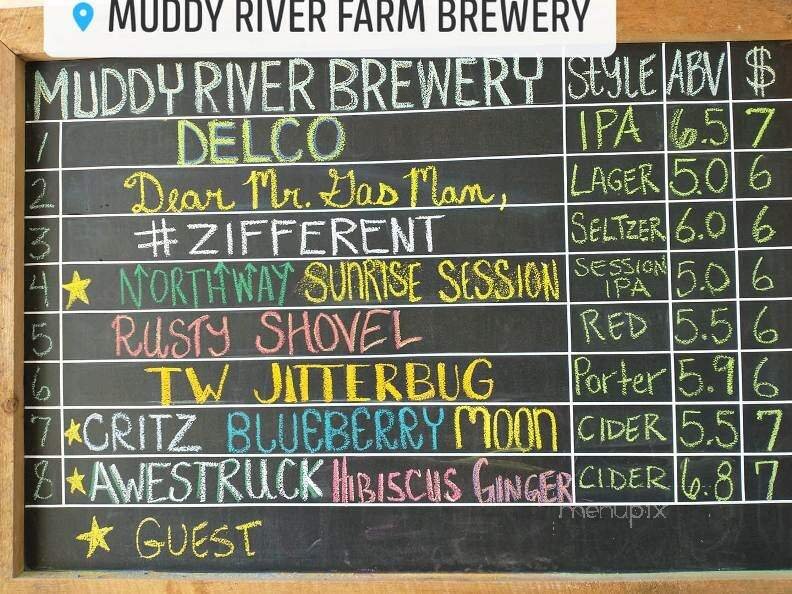 MUDDY RIVER FARM BREWERY
MUDDY RIVER BREWERY STYLE ABV $
1 DELCO IPA 6.5 7
2 Dear Mr. Gas Man, LAGER 5.0 6
3 #ZIFFERENT SELTZER 6.0 6
4 ★ NORTHWAY SUNRISE SESSION SESSION IPA 5.0 6
5 RUSTY SHOVEL RED 5.5 6
6 TW JITTERBUG Porter 5.9 6
7 ★ CRITZ BLUEBERRY MOON CIDER 5.5 7
8 ★ AWESTRUCK HIBISCUS GINGER CIDER 6.8 7
menupix
★ GUEST